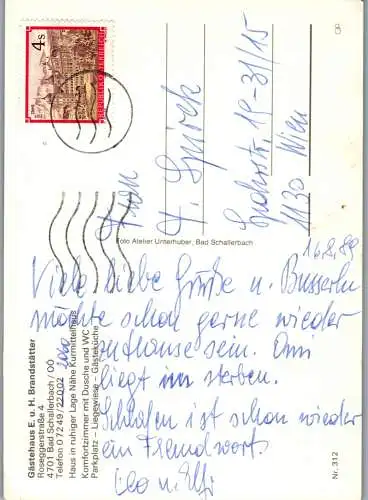 4 S
REPUBLIK ÖSTERREICH
8
Herrn
Wien
1130 Wien
Foto Atelier Unterhuber, Bad Schallerbach
16.2.89
Viele liebe Grüße u. Busserln
möchte schon gerne wieder
zuhause sein. Omi
liegt im sterben.
Schlafen ist schon wieder
ein Fremdwort.
Gästehaus E. u. H. Brandstätter
Roseggerstraße 4
4701 Bad Schallerbach / OÖ
Telefon 0 72 49 / 22 0 02
Haus in ruhiger Lage Nähe Kurmittelhaus
Komfortzimmer mit Dusche und WC
Parkplatz – Liegewiese – Gästeküche
Nr. 312